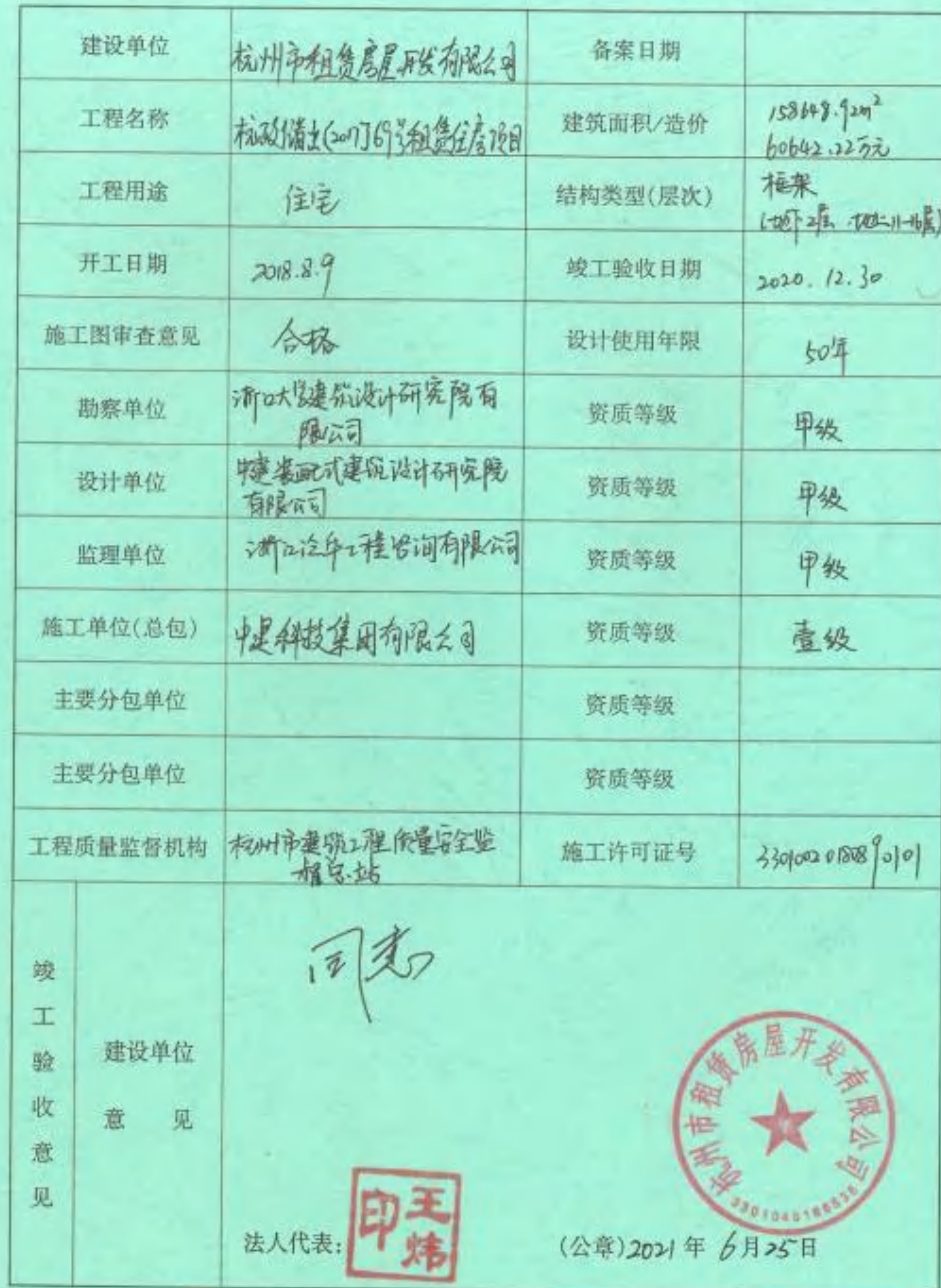 建设单位 杭州市租赁房屋开发有限公司 备案日期
工程名称 杭政储出(2017)69号租赁住房项目 建筑面积/造价 158648.92m²
60642.22万元
工程用途 住宅 结构类型(层次) 框架
(地下2层 地上11-16层)
开工日期 2018.8.9 竣工验收日期 2020.12.30
施工图审查意见 合格 设计使用年限 50年
勘察单位 浙江大学建筑设计研究院有
限公司 资质等级 甲级
设计单位 中建装配式建筑设计研究院
有限公司 资质等级 甲级
监理单位 浙江泛华工程咨询有限公司 资质等级 甲级
施工单位(总包) 中建科技集团有限公司 资质等级 壹级
主要分包单位 资质等级
主要分包单位 资质等级
工程质量监督机构 杭州市建筑工程质量安全监
督总站 施工许可证号 330100201808090101
竣工验收意见
建设单位
意 见
同意
杭州市租赁房屋开发有限公司
法人代表:
王炜印
(公章)2021年6月25日